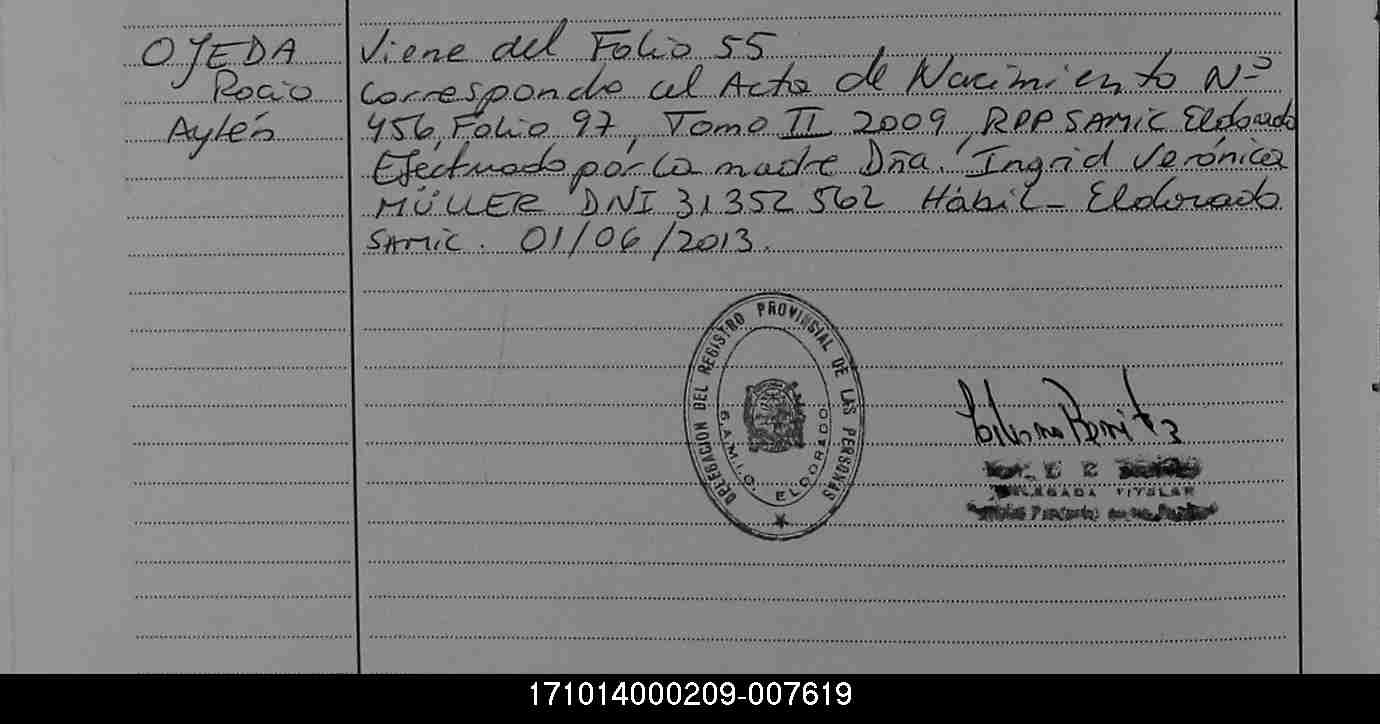 OJEDA
Rocio
Aylén
Viene del Folio 55
Corresponde al Acta de Nacimiento Nº
456, Folio 97, Tomo II 2009, RPP SAMIC Eldorado
Efectuado por la madre Dña. Ingrid Verónica
MÜLLER DNI 31352562 Hábil - Eldorado
SAMIC. 01/06/2013.
DELEGACION DEL REGISTRO PROVINCIAL DE LAS PERSONAS
S.A.M.I.C. ELDORADO
DELEGADA TITULAR
171014000209-007619